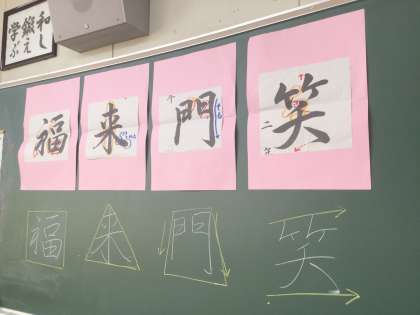 和し
鍛え
学ぶ
笑
門
来
福
笑
門
来
福